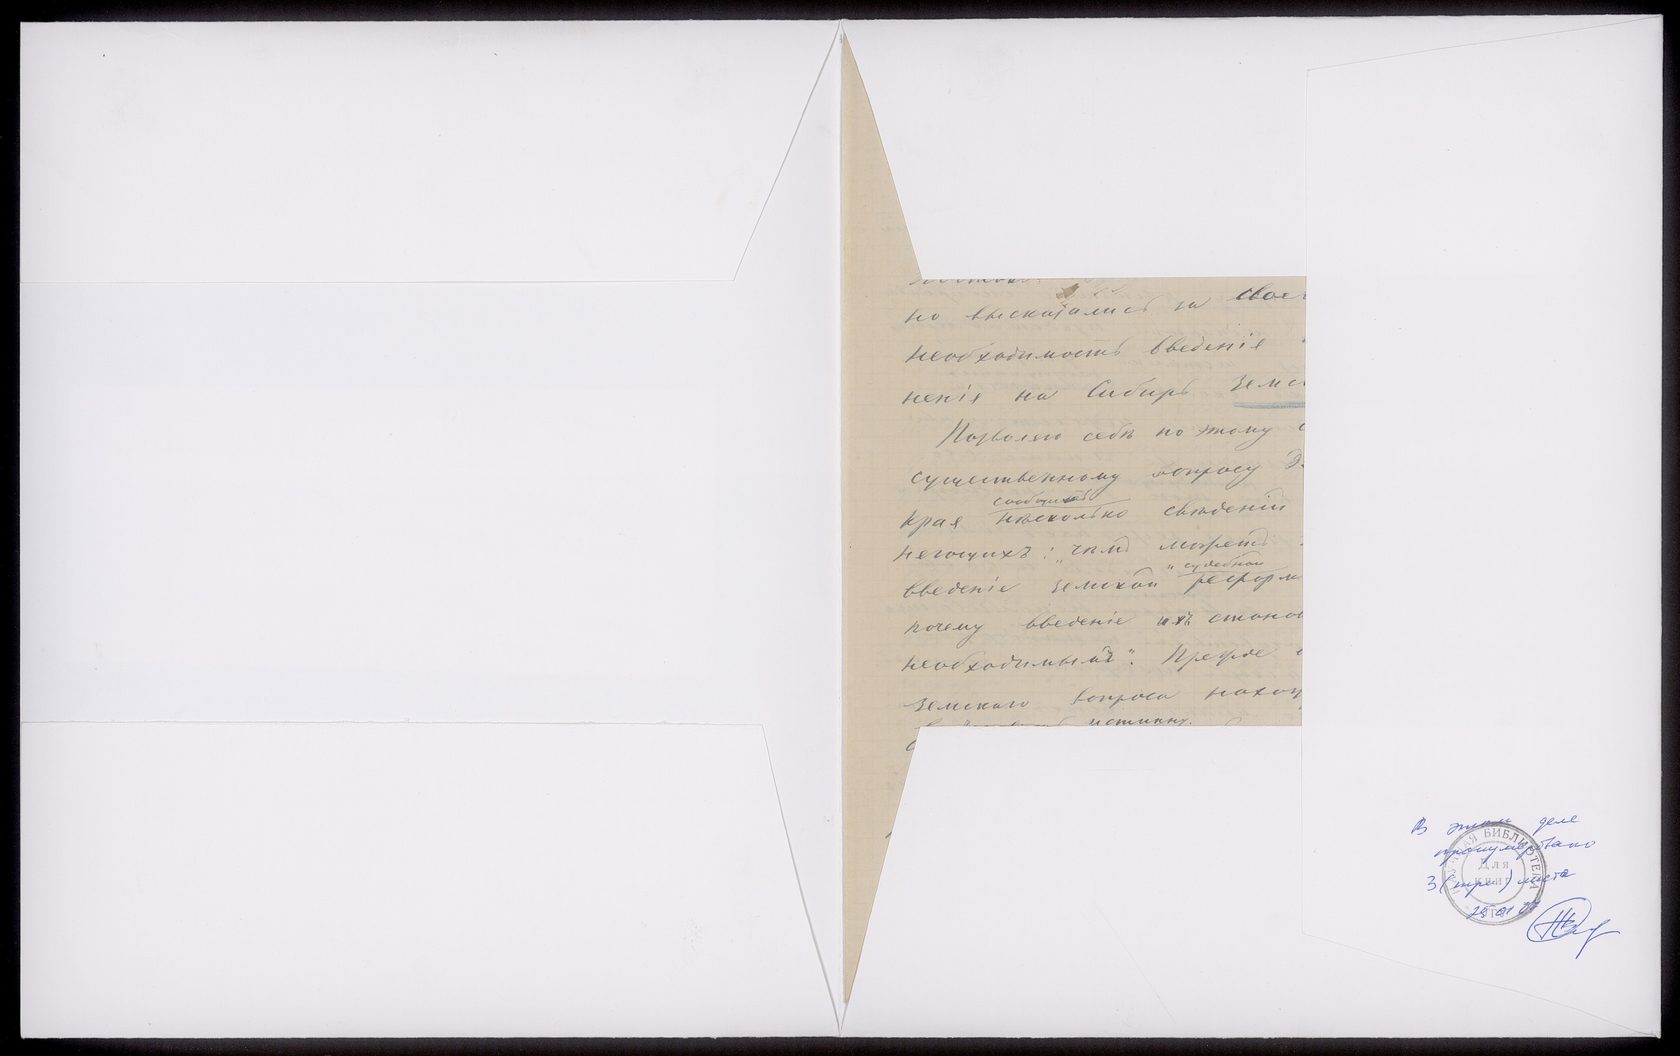 но высказались за свое
необходимость введенія
ненія на Сибирь Земс
Позволяю себѣ по этому с
существенному вопросу
сообщить
края нѣсколько свѣденій
"чѣмъ можетъ
судебной
введеніе земской реформ
почему введеніе ихъ станов
необходимымъ". Прежде
земскаго вопроса нахож
истины.
В этом деле
пронумеровано
3 (три) листа
НАУЧНАЯ БИБЛИОТЕКА
Для
книг